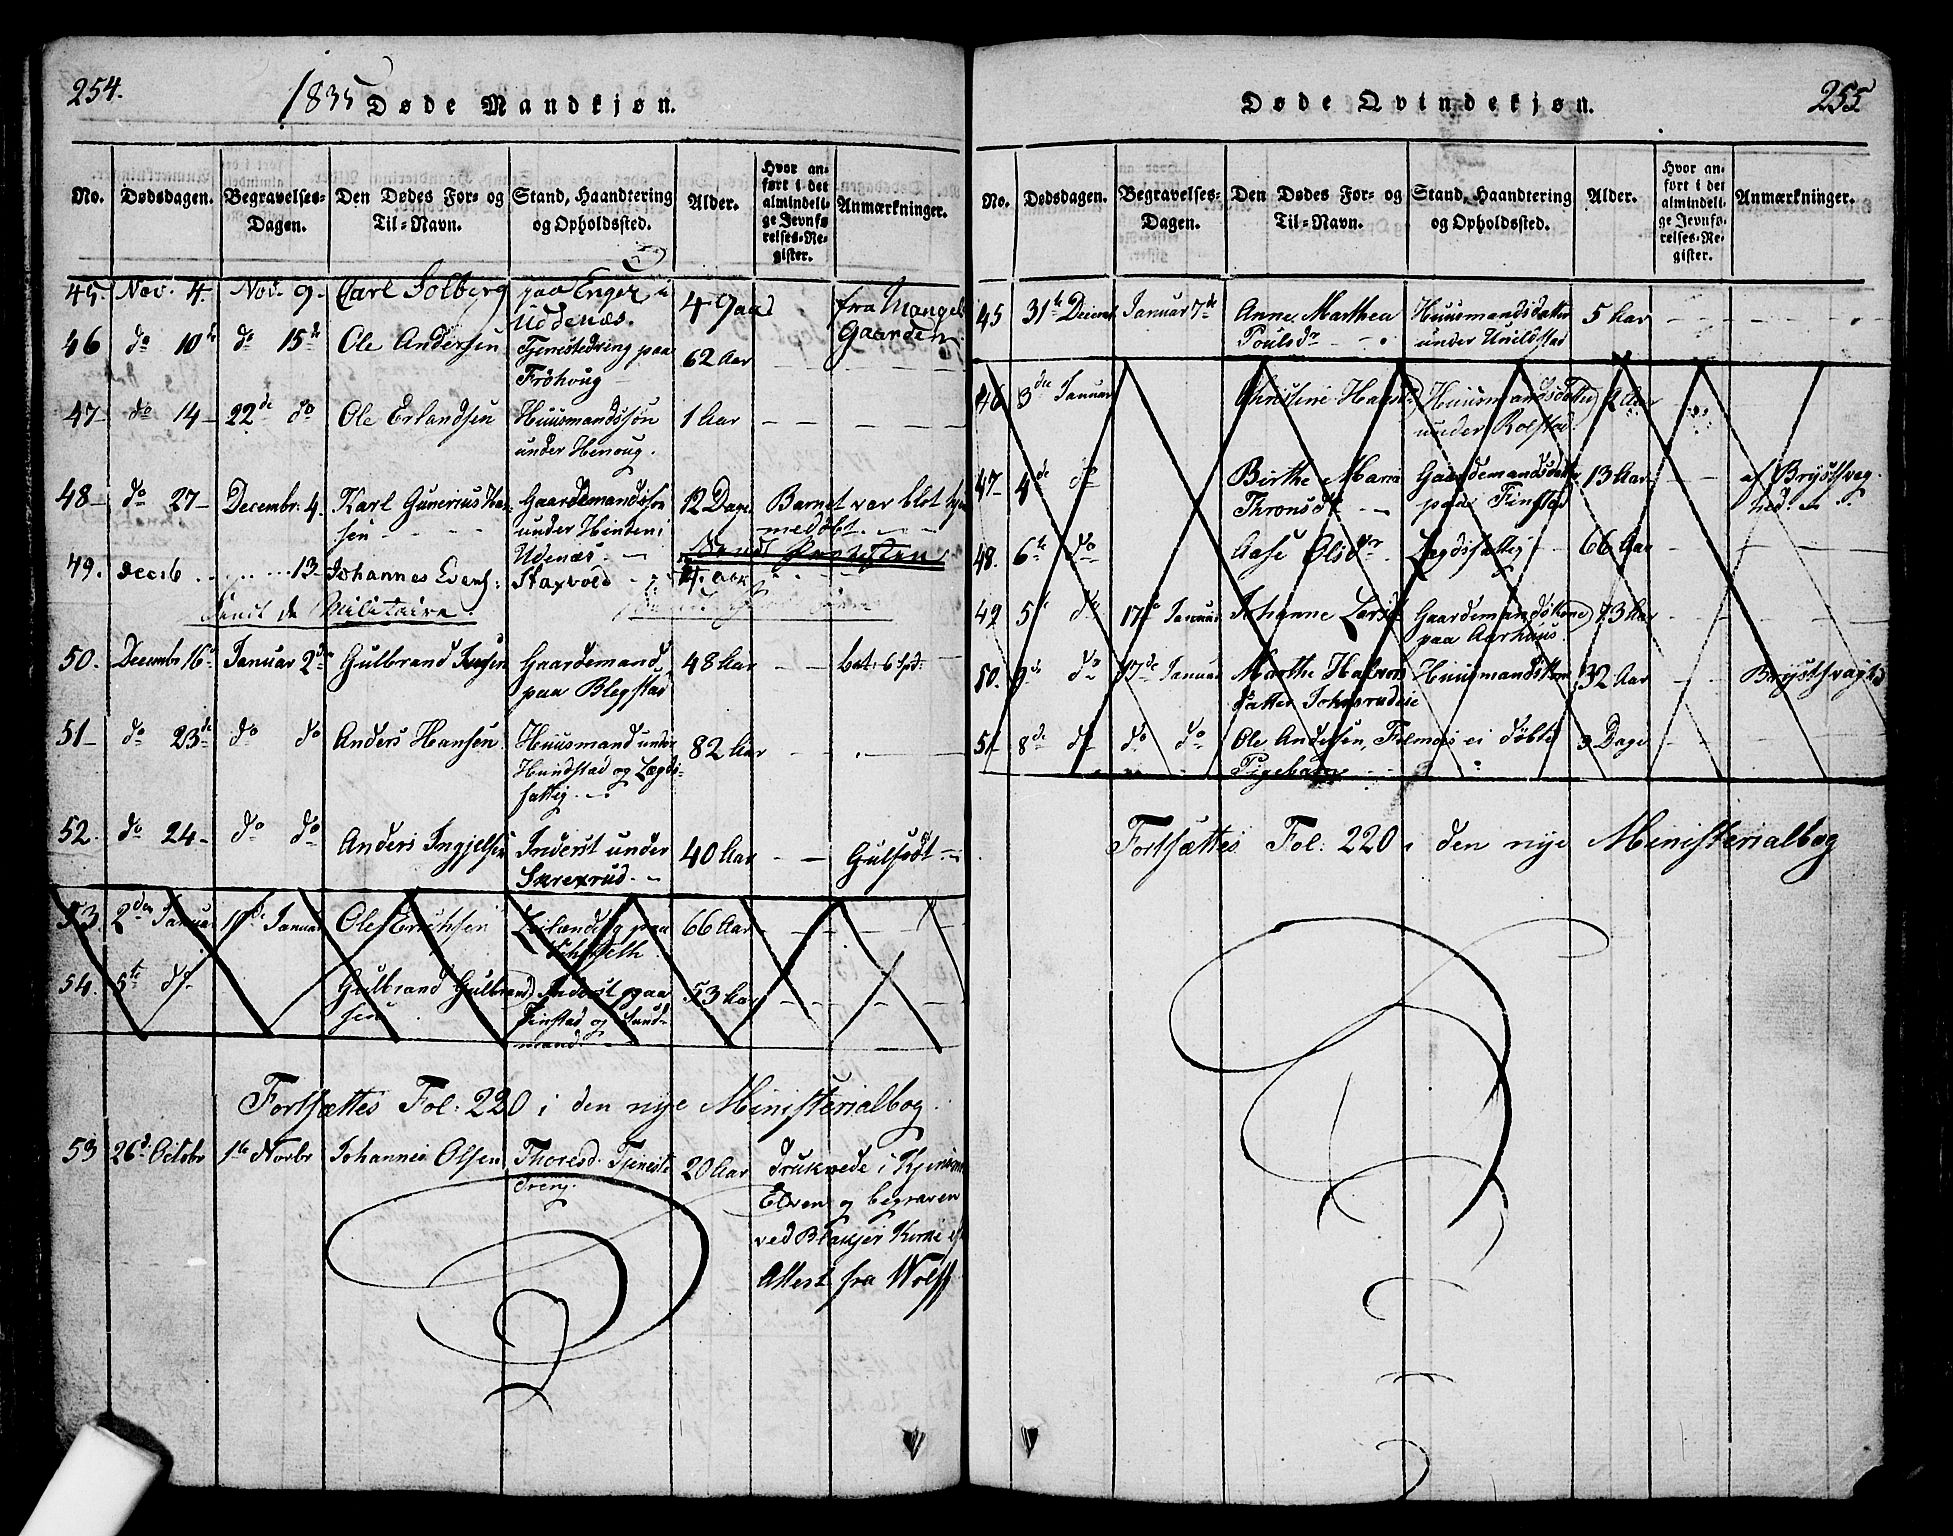 254.
1835 Døde Mandkjøn.
No. Dødsdagen. Begravelses-Dagen. Den Dødes For- og Til-Navn. Stand, Haandtering og Opholdssted. Alder. Hvor anført i det almindelige Jevnførelses-Register. Anmærkninger.
45. Nov. 4. Nov. 9. Carl Solberg paa Enger i Uddenæs. fra Mangels Gaarden
46 do 10de do 15de Ole Andersen Tjenestedreng paa Frøhoug 62 Aar
47 do 14 22de do Ole Erlandsen Huusmandssøn under Henoug. 1 Aar
48 do 27 Decembr. 4. Karl Gunerius Han- sen Gaardemandssøn under Hinten i Udenæs. 12 Dage Barnet var blot hjemmedøbt.
49. Decs 6 13 Johannes Evens: Starvold
Sendt de Militaire.
50. Decembr 16de Januar 2den Gulbrand Jensen Gaardemand paa Blegstad 48 Aar bet: 6
51 do 23de do do Anders Hansen Huusmand under Hundstad og Lægdsfattig. 82 Aar
52. do 24 do do Anders Ingjelsen Inderst under 40 Aar Gulsodt
53. 2den Januar 19de Januar Ole Erichsen Leilænding paa 66 Aar
54. 5te do Gulbrand Gulbrandsen Inderst paa Finstad og Sandmand 53 Aar
Fortsættes Fol: 220 i den nye Ministerialbog.
53 26de Octobr 1te Novbr Johannes Olsen Thoresd. Tjeneste Dreng. 20 Aar Druknede i
Elven og begraven
ved Blakjer Kirke
Attest fra Wolff
Døde Qvindekjøn.
255
No. Dødsdagen. Begravelses-Dagen. Den Dødes For- og Til-Navn. Stand, Haandtering og Opholdssted. Alder. Hvor anført i det almindelige Jevnførelses-Register. Anmærkninger.
45 31te Decembr Januar 7de Anne Marthea Poulsdr Huusmandsdatter under 5 Aar
46 3die Januar Christine Hansd Huusmandsdatter under Rolstad Aar
47 4de do Birthe Maria Thronsdtr Gaardemandsdatter paa Finstad 13 Aar af Brystsvaghed
48. 6te do Aase Olsdtr Lægdsfattig 66 Aar
49 5te do 17de Januar Johanne Larsdtr Gaardemandskone paa Aarhuus. 73 Aar
50. 9de do 17de Januar Marthe Halvorsdatter Huusmandskone 32 Aar Brystsvaghed
51 8de do do do Ole Andersen, ei døbte Pigebarn 3 Dage
Fortsættes Fol: 220 i den nye Ministerialbog